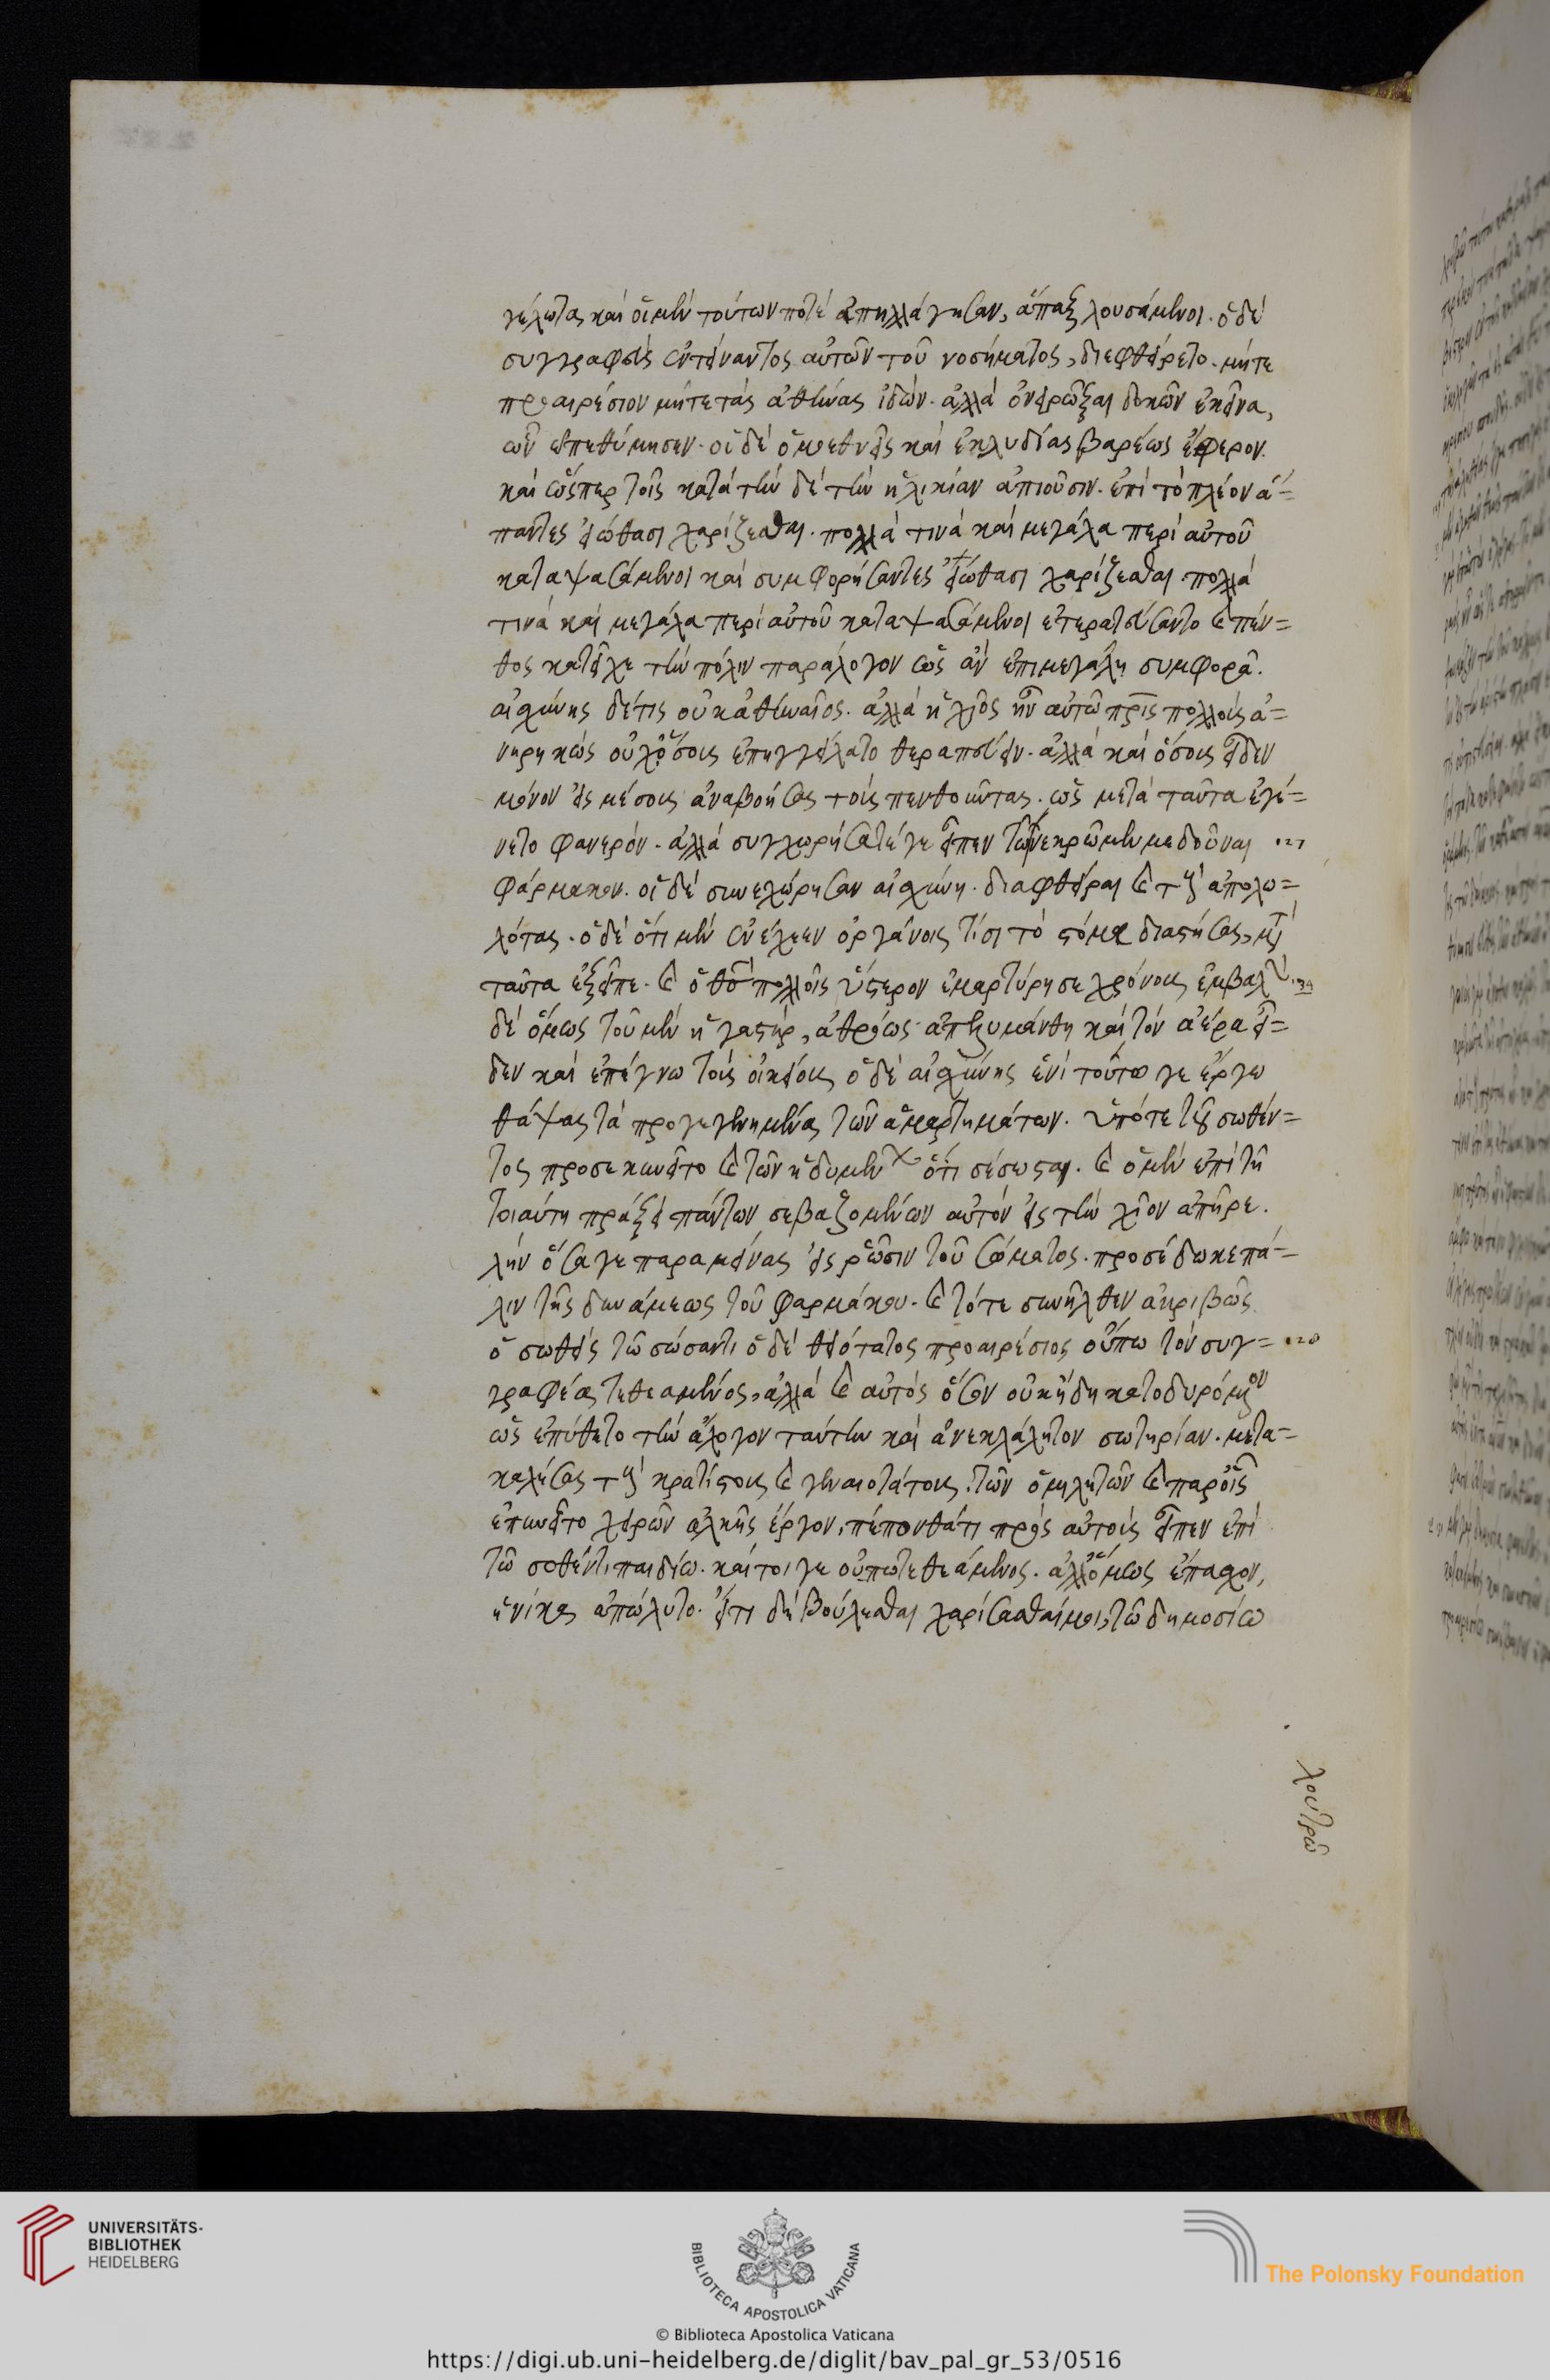 γέλωτας καὶ οἱ μὲν τούτων ποτὲ ἀπηλλάγησαν, ἅπαξ λουσάμενοι. ὁ δὲ
συγγραφεὺς ἐντείναντος αὐτῶν τοῦ νοσήματος, διεφθείρετο. μήτε
προαιρέσιον μήτε τὰς ἀθήνας ἰδὼν. ἀλλὰ ὀνειρῶξαι δοκῶν ἐκεῖνα,
ὧν ἐπεθύμησεν. οἱ δὲ ὁμοεθνεῖς καὶ ἐκ λυδίας βαρέως ἔφερον.
καὶ ὥσπερ τοῖς κατὰ τὴν δὲ τὴν ἡλικίαν ἀπιοῦσιν. ἐπὶ τὸ πλέον ἅ=
παντες εἰώθασι χαρίζεσθαι. πολλά τινα καὶ μεγάλα περὶ αὐτοῦ
καταψασάμενοι καὶ συμφορήσαντες εἰώθασι χαρίζεσθαι. πολλά
τινα καὶ μεγάλα περὶ αὐτοῦ καταψασάμενοι ἐτερατεύσαντο καὶ πέν=
θος κατεῖχε τὴν πόλιν παράλογον ὡς ἂν ἐπι μεγάλη συμφορᾶ.
αἰσχίνης δέ τις οὐκ ἀθηναῖος. ἀλλὰ ἡ χῖος ἦν αὐτῶ πρὶς πολλοὺς ἀ=
νηρηκὼς οὐχ ὅσοις ἐπηγγείλατο θεραπεύειν. ἀλλὰ καὶ ὅσοις εἶδεν
μόνον εἰς μέσους ἀναβοήσας τοὺς πενθοῦντας. ὡς μετὰ ταῦτα ἐγέ=
νετο φανερόν. ἀλλὰ συγχωρήσατέ γε εἶπεν τῶ νεκρῶ μὲν με δοῦναι
φάρμακον. οἱ δὲ συνεχώρησαν αἰσχίνη. διαφθεῖραι καὶ τοὺς ἀπολω=
λότας. ὁ δὲ ὅτι μὲν ἐνέχεεν ὀργάνοις τισὶ τὸ στόμα διαστήσας, μετὰ
ταῦτα ἐξεῖπε. καὶ ὁ θεὸς πολλοῖς ὕστερον ἐμαρτύρησε χρόνοις ἐμβαλὼν
δὲ ὅμως τοῦ μὲν ἡ γαστὴρ, ἀθρόως ἀπελυμάνθη καὶ τὸν ἀέρα εἶ=
δεν καὶ ἐπέγνω τοὺς οἰκείους ὁ δὲ αἰσχίνης ἑνὶ τούτω γε ἔργω
θάψας τὰ προγεγενημένας τῶν ἁμαρτημάτων. ὑπό τε τοῦ σωθέν=
τος προσεκυνεῖτο καὶ τῶν ἡδομένων ὅτι σέσωσται. καὶ ὁ μὲν ἐπὶ τῆ
τοιαύτη πράξει πάντων σεβαζομένων αὐτὸν εἰς τὴν χῖον ἀπῆρε.
λὴν ὅσα γε παραμείνας εἰς ῥῶσιν τοῦ σώματος. προσέδωκε πά=
λιν τῆς δυνάμεως τοῦ φαρμάκου. καὶ τότε συνῆλθεν ἀκριβῶς
ὁ σωθεὶς τῶ σώσαντι ὁ δὲ θειότατος προαιρέσιος οὔπω τὸν συγ=
γραφέα τεθεαμένος, ἀλλὰ καὶ αὐτὸς ὅσον οὐκ ἤδη κατοδυρόμενον
ὡς ἐπύθετο τὴν ἄλογον ταύτην καὶ ἀνεκλάλητον σωτηρίαν. μετα=
καλέσας τοὺς κρατίστους καὶ γενναιοτάτους. τῶν ὁμιλητῶν καὶ παρ οἷς
ἐπηνεῖτο χειρῶν ἀλκῆς ἔργον, πέπονθά τι πρὸς αὐτοὺς εἶπεν ἐπὶ
τῶ σοθέντι παιδίω. καίτοι γε οὔπω τεθεάμενος. ἀλλ ὅμως ἔπασχον,
ἡνίκα ἀπώλυτο. εἴ τι δὴ βούλεσθαι χαρίσασθαί μοι, τῶ δημοσίω
λουτρῶ
UNIVERSITÄTS-
BIBLIOTHEK
HEIDELBERG
BIBLIOTECA APOSTOLICA VATICANA
The Polonsky Foundation
© Biblioteca Apostolica Vaticana
https://digi.ub.uni-heidelberg.de/diglit/bav_pal_gr_53/0516